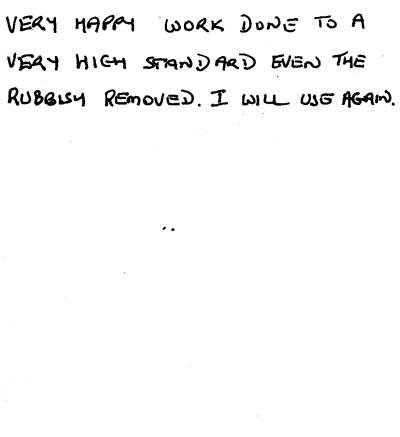 VERY HAPPY WORK DONE TO A
VERY HIGH STANDARD EVEN THE
RUBBISH REMOVED. I WILL USE AGAIN.